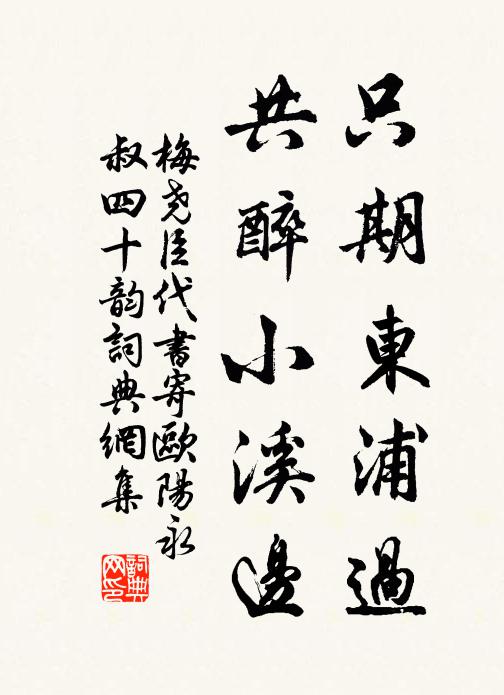 只期東浦過
共醉小溪邊
梅堯臣代書寄歐陽永
叔四十韵詞典網集
詞典
网印